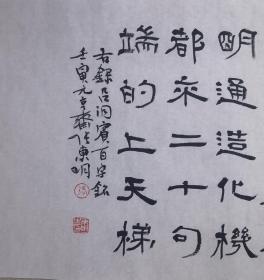 明通造化機
都來二十句
端的上天梯
右錄呂洞賓百字銘
壬寅元亨齋任東明